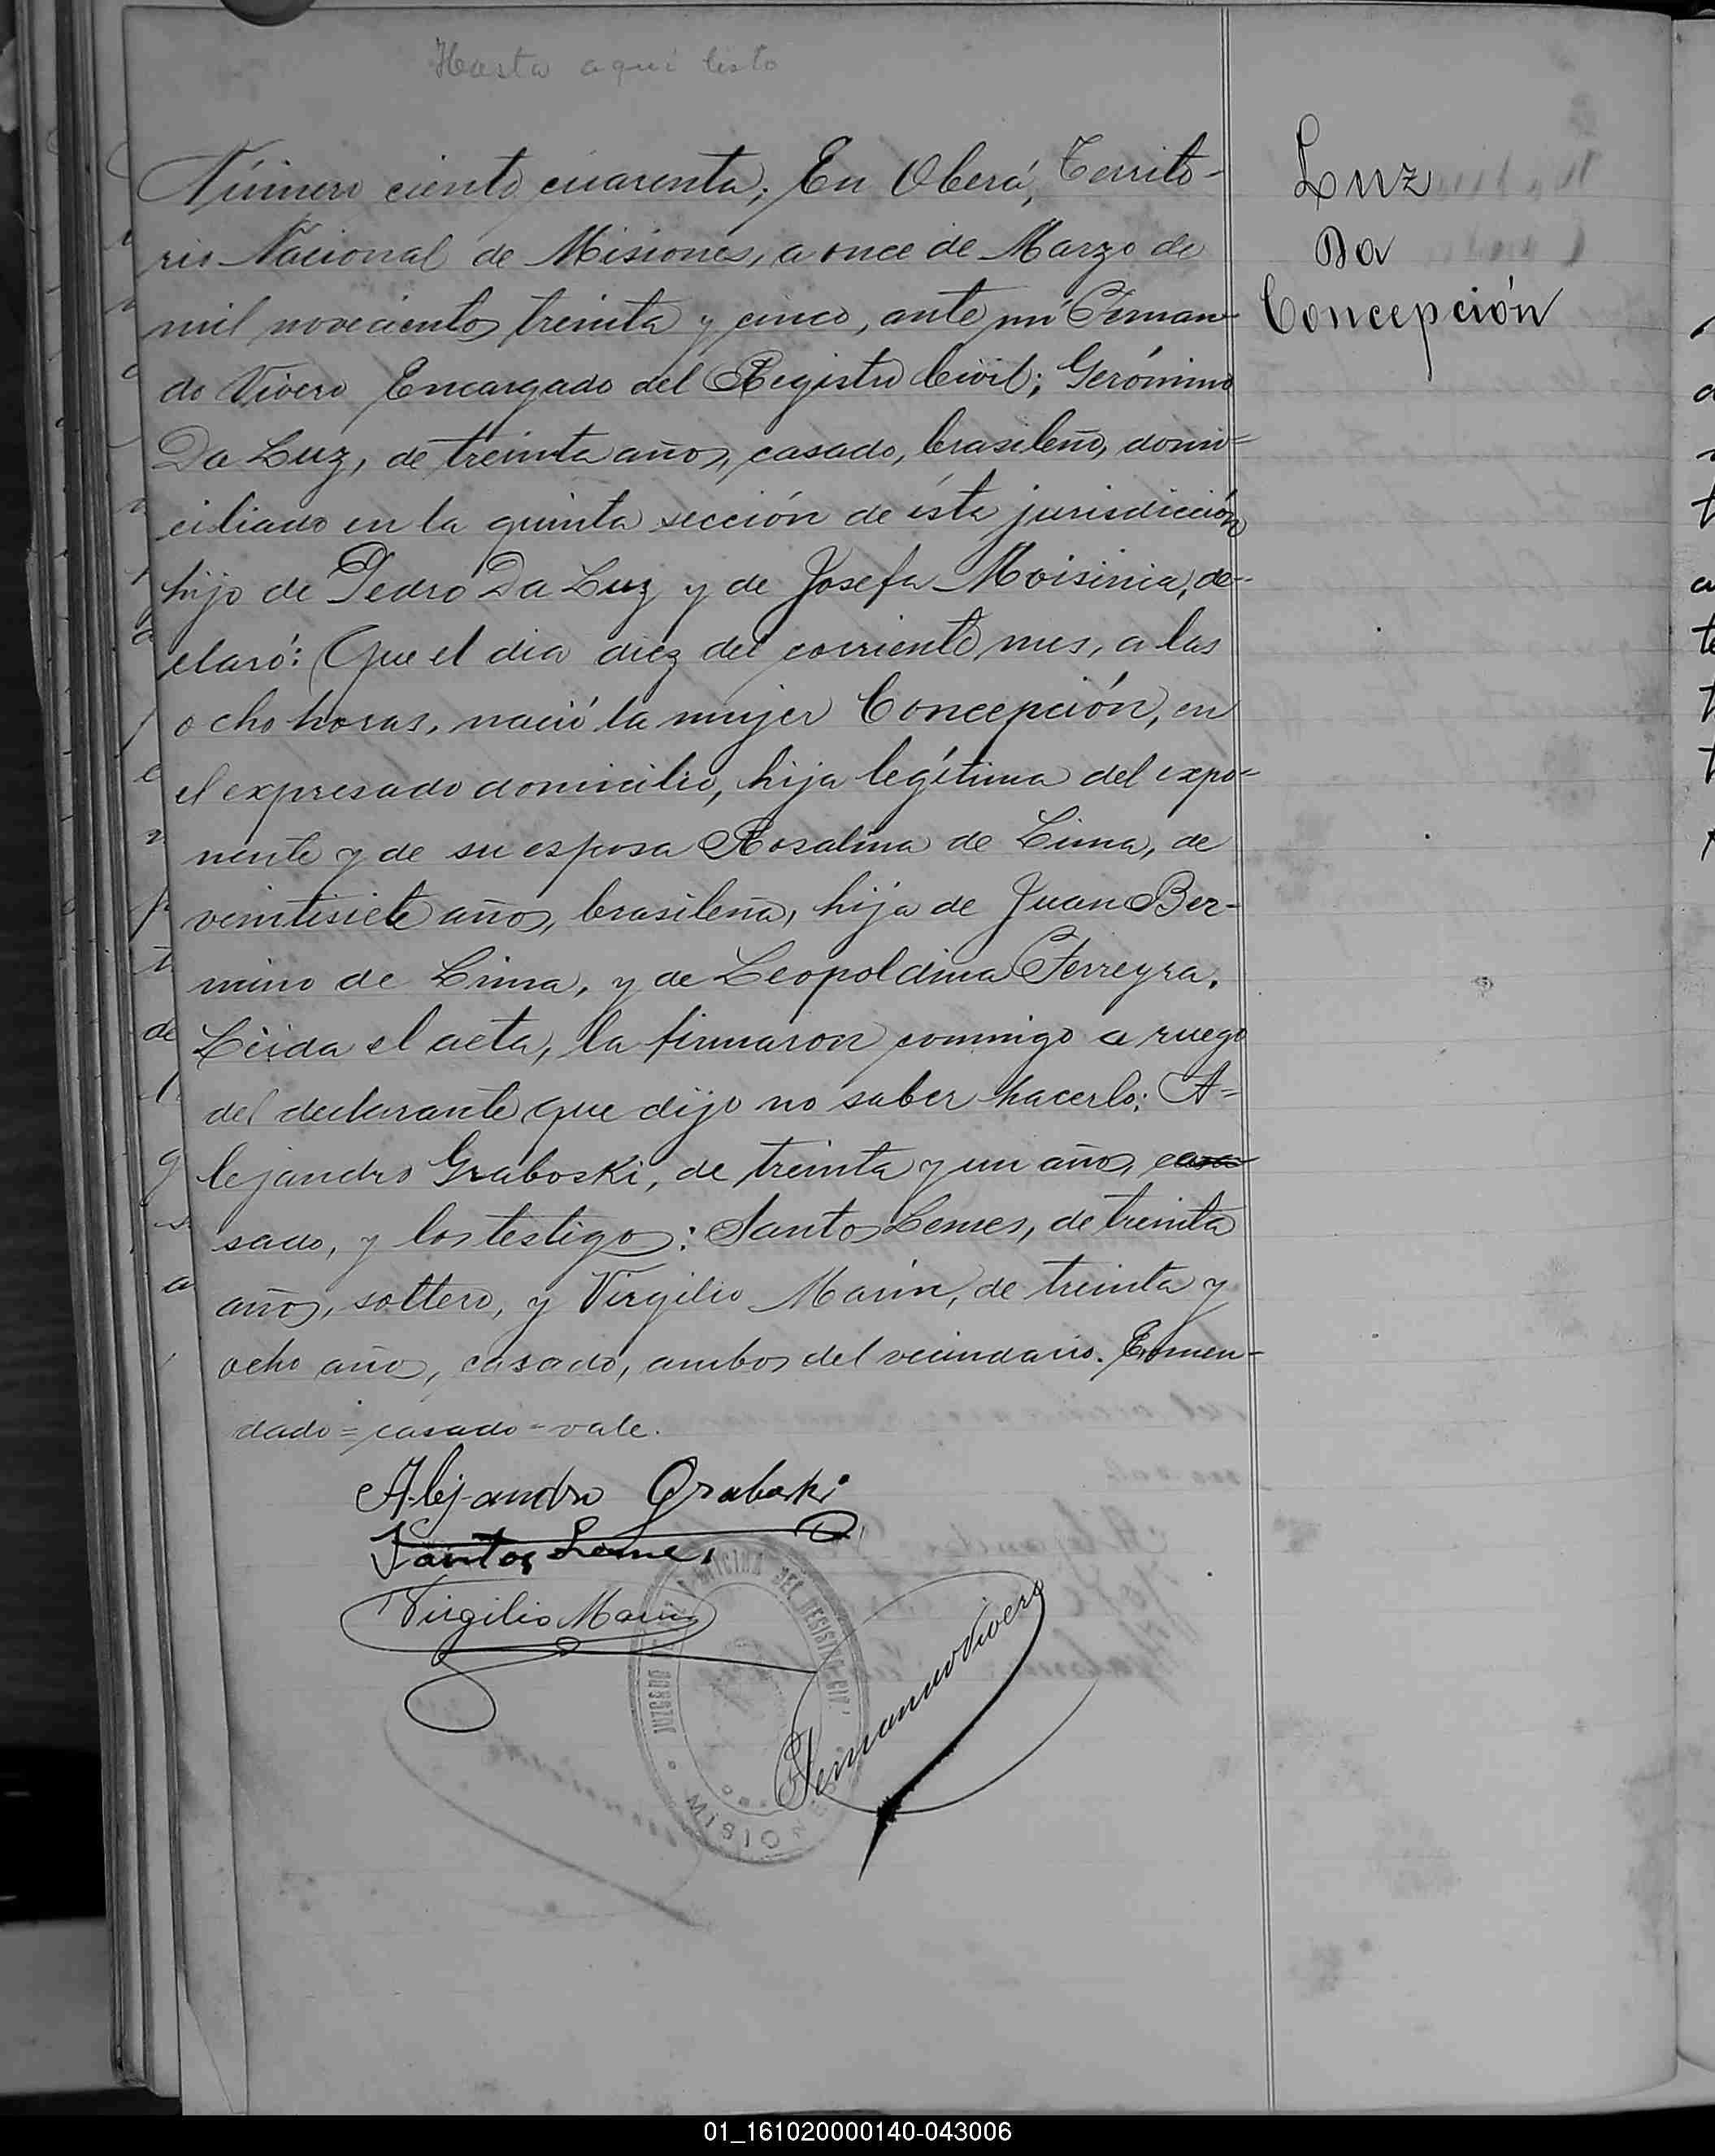 Hasta aquí listo
Número ciento cuarenta; En Oberá, Territo-
rio Nacional de Misiones, a once de Marzo de
mil novecientos treinta y cinco, ante mí Fernan-
do Vivero Encargado del Registro Civil; Gerónimo
Da Luz, de treinta años, casado, brasileño, domi-
ciliado en la quinta sección de ésta jurisdicción
hijo de Pedro Da Luz y de Josefa Moisinia, de-
claró: Que el dia diez del corriente mes, a las
ocho horas, nació la mujer Concepción, en
el expresado domicilio, hija legítima del expo-
nente y de su esposa Rosalina de Lima, de
veintisiete años, brasileña, hija de Juan Ber-
mino de Lima, y de Leopoldina Ferreyra.
Leida el acta, la firmaron conmigo a ruego
del declarante que dijo no saber hacerlo: A-
lejandro Graboski, de treinta y un años, casa
sado, y los testigos: Santos Lemes, de treinta
años, soltero, y Virgilio Marin, de treinta y
ocho años, casado, ambos del vecindario. Enmen-
dado=casado=vale.
Alejandro Graboski
Santos Lemes
Virgilio Marin
Fernando Vivero
JUZGADO DE PAZ Y OFICINA DEL REGISTRO CIVIL
MISIONES
Luz
Da
Concepción
de
01_161020000140-043006